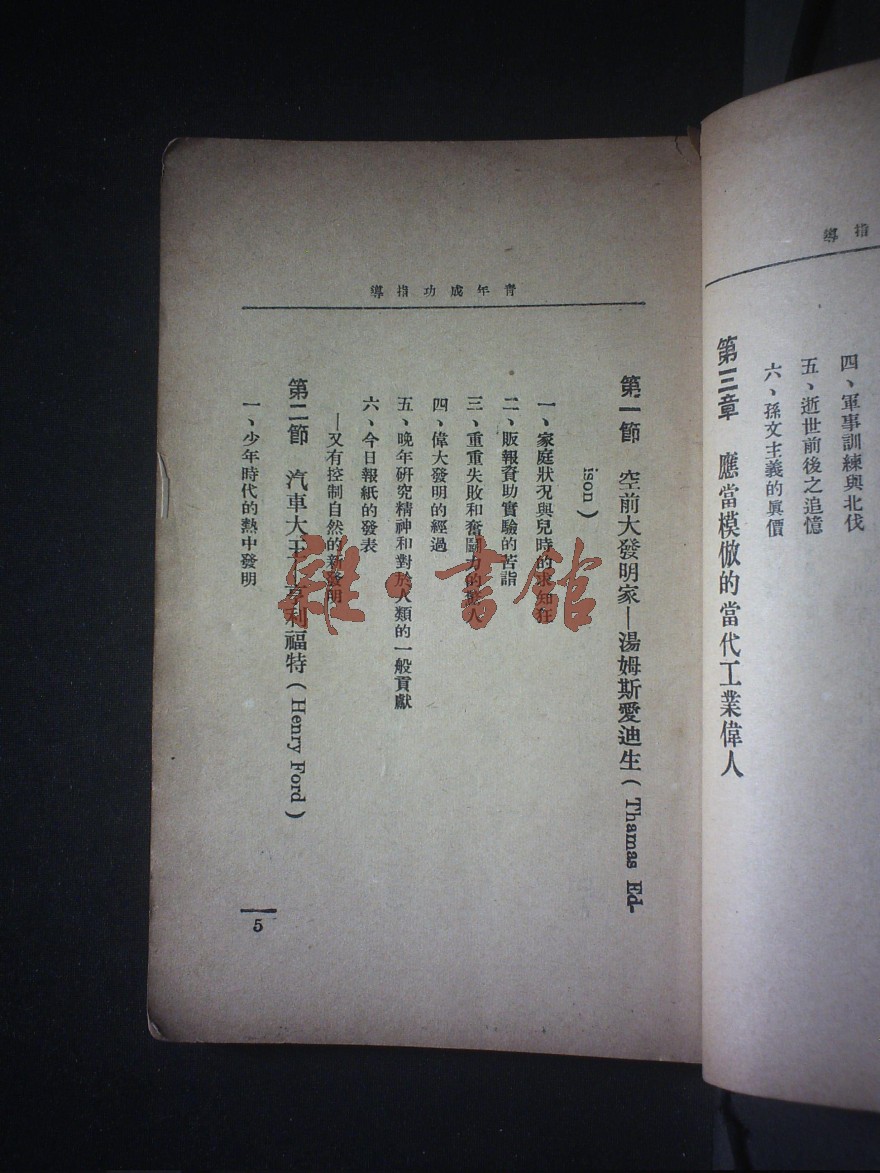 指導
四、軍事訓練與北伐
五、逝世前後之追憶
六、孫文主義的眞價
第三章 應當模倣的當代工業偉人
青年成功指導
第一節 空前大發明家—湯姆斯愛迪生(Thamas Ed-
ison)
一、家庭狀況與兒時的求知狂
二、販報資助實驗的苦詣
三、重重失敗和奮鬪力的驚人
四、偉大發明的經過
五、晚年硏究精神和對於人類的一般貢獻
六、今日報紙的發表
—又有控制自然的新發明
第二節 汽車大王—亨利福特(Henry Ford)
一、少年時代的熱中發明
5
雜·書館